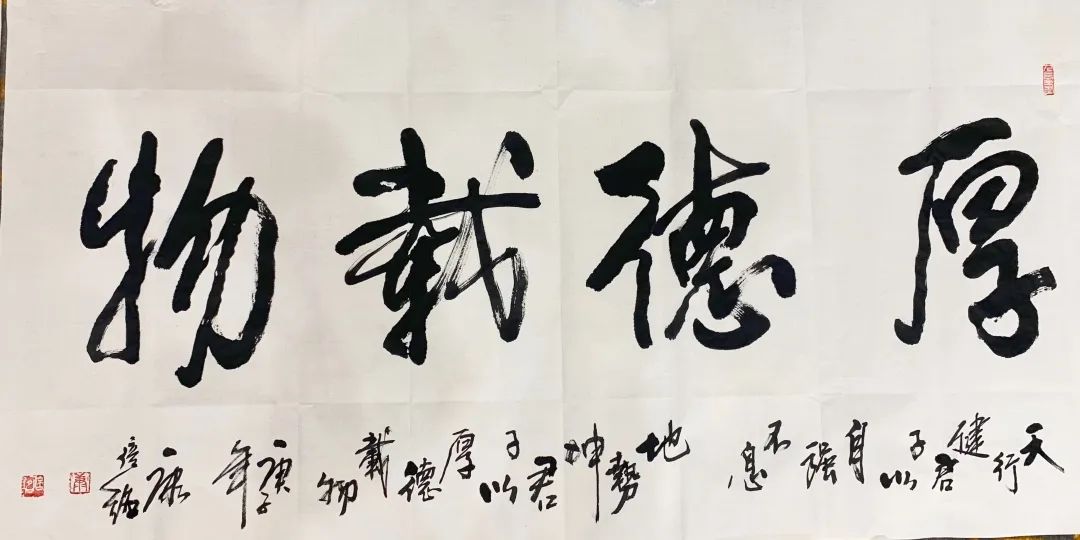 厚德載物
天行健君子以自强不息地勢坤君子以厚德載物庚子年康